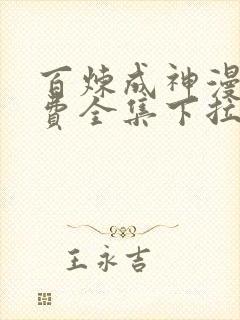 百炼成神漫
费全集下拉
王永吉